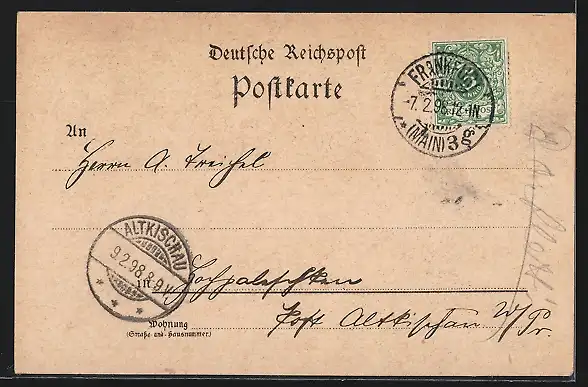 Deutsche Reichspost
Postkarte
FRANKFURT
7.2.98.12-1N
(MAIN) 3
An
Herrn A. Treichel
ALTKISCHAU
9.2.98.8-9V.
in Hochpaleschken
Wohnung
(Straße und Hausnummer)
Post Altkischau W/Pr.